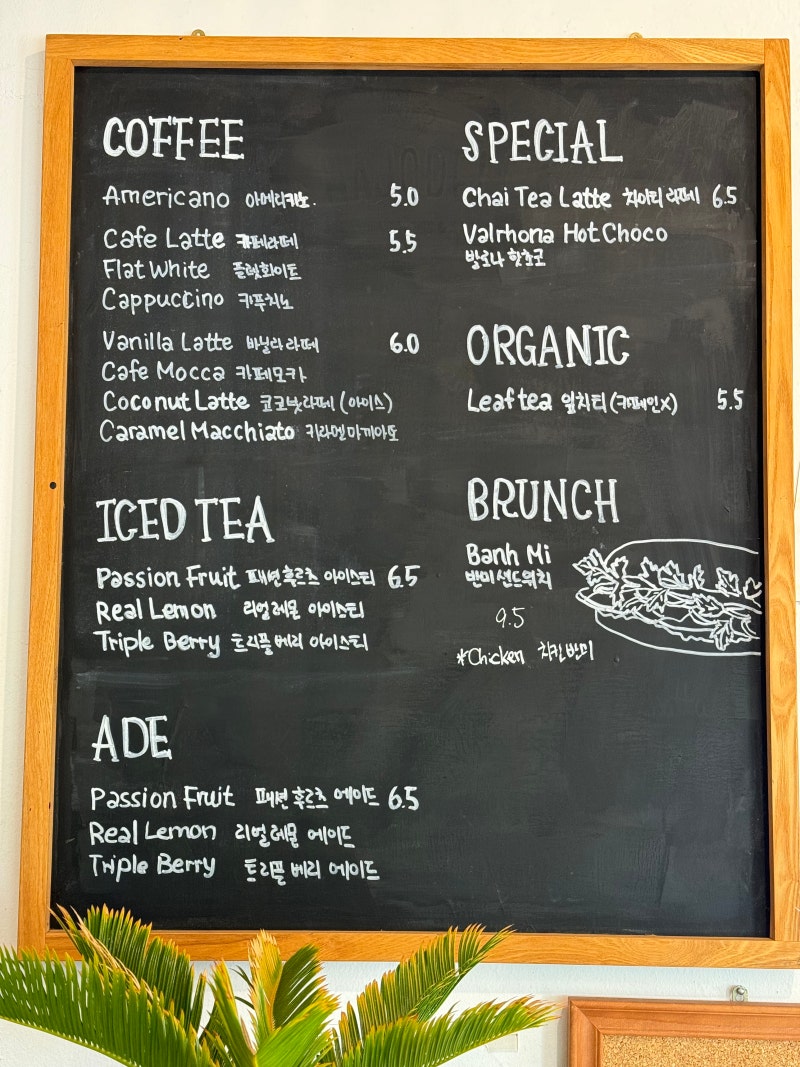 COFFEE
Americano 아메리카노. 5.0
Cafe Latte 카페라떼 5.5
Flat White 플랫화이트
Cappuccino 카푸치노
Vanilla Latte 바닐라라떼 6.0
Cafe Mocca 카페모카
Coconut Latte 코코넛라떼 (아이스)
Caramel Macchiato 카라멜마끼아또
ICED TEA
Passion Fruit 패션후르츠 아이스티 6.5
Real Lemon 리얼레몬 아이스티
Triple Berry 트리플베리 아이스티
ADE
Passion Fruit 패션후르츠 에이드 6.5
Real Lemon 리얼레몬 에이드
Triple Berry 트리플베리 에이드
SPECIAL
Chai Tea Latte 차이티라떼 6.5
Valrhona Hot Choco
발로나 핫초코
ORGANIC
Leaf tea 잎차티 (카페인X) 5.5
BRUNCH
Banh Mi
반미샌드위치
9.5
*Chicken 치킨반미